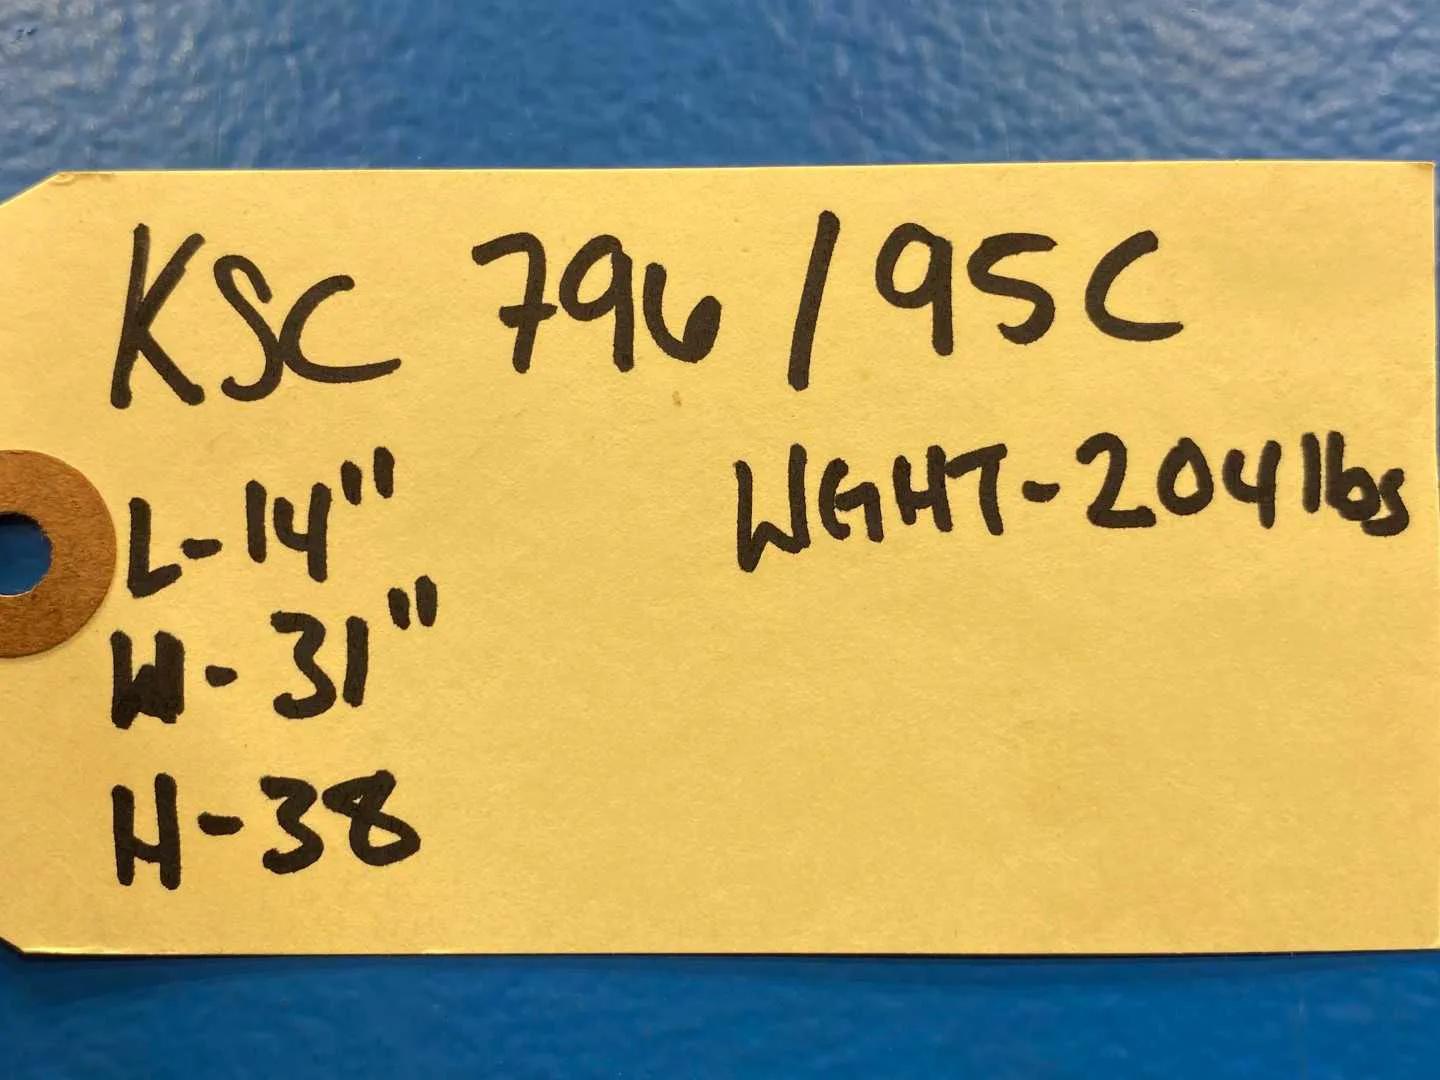 KSC 796/95C
L-14" WGHT-204lbs
W-31"
H-38